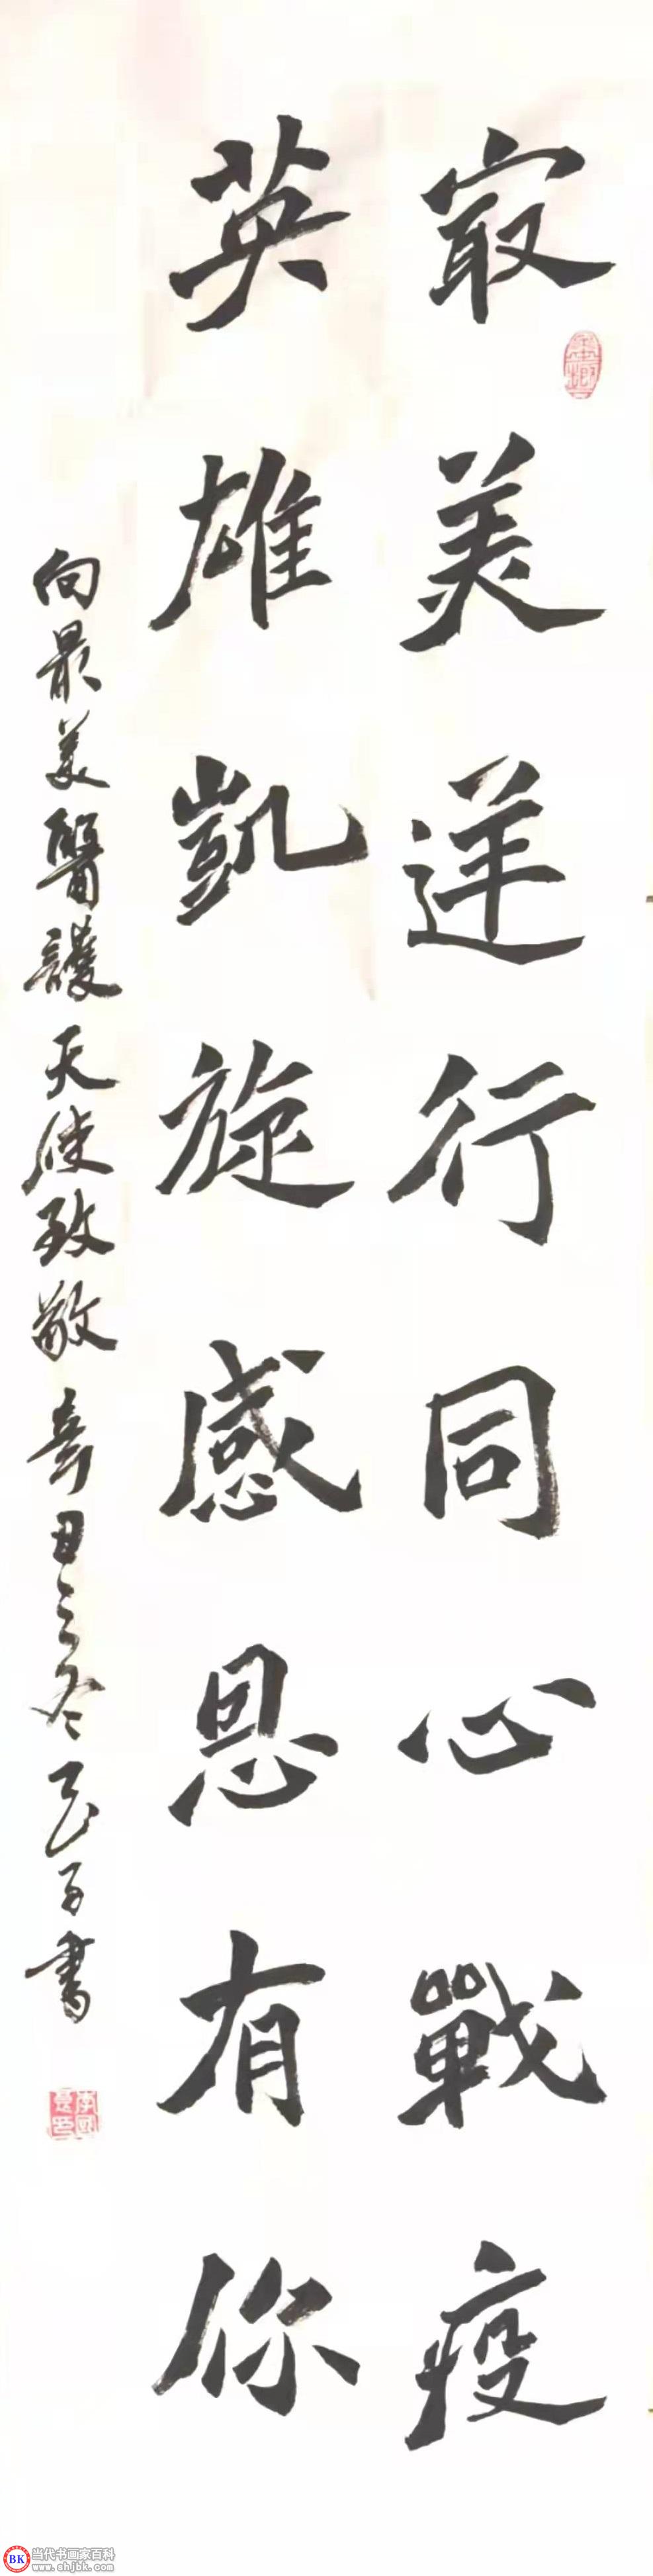 冣美逆行同心戰疫
英雄凱旋感恩有你
向最美醫護天使致敬 辛丑之冬 書
BK 当代书画家百科
www.shjbk.com